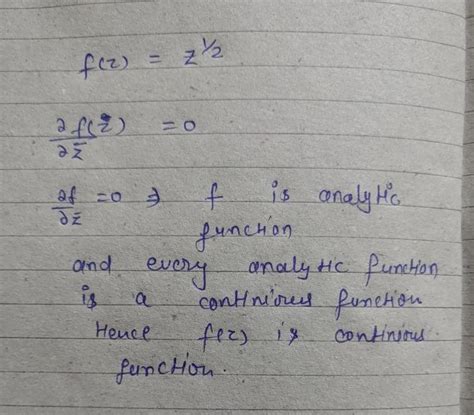 f(z) = z^1/2
∂f(z)/∂z̄ = 0
∂f/∂z̄ = 0 ⇒ f is analytic
function
and every analytic function
is a continious function
Hence f(z) is continious
function.